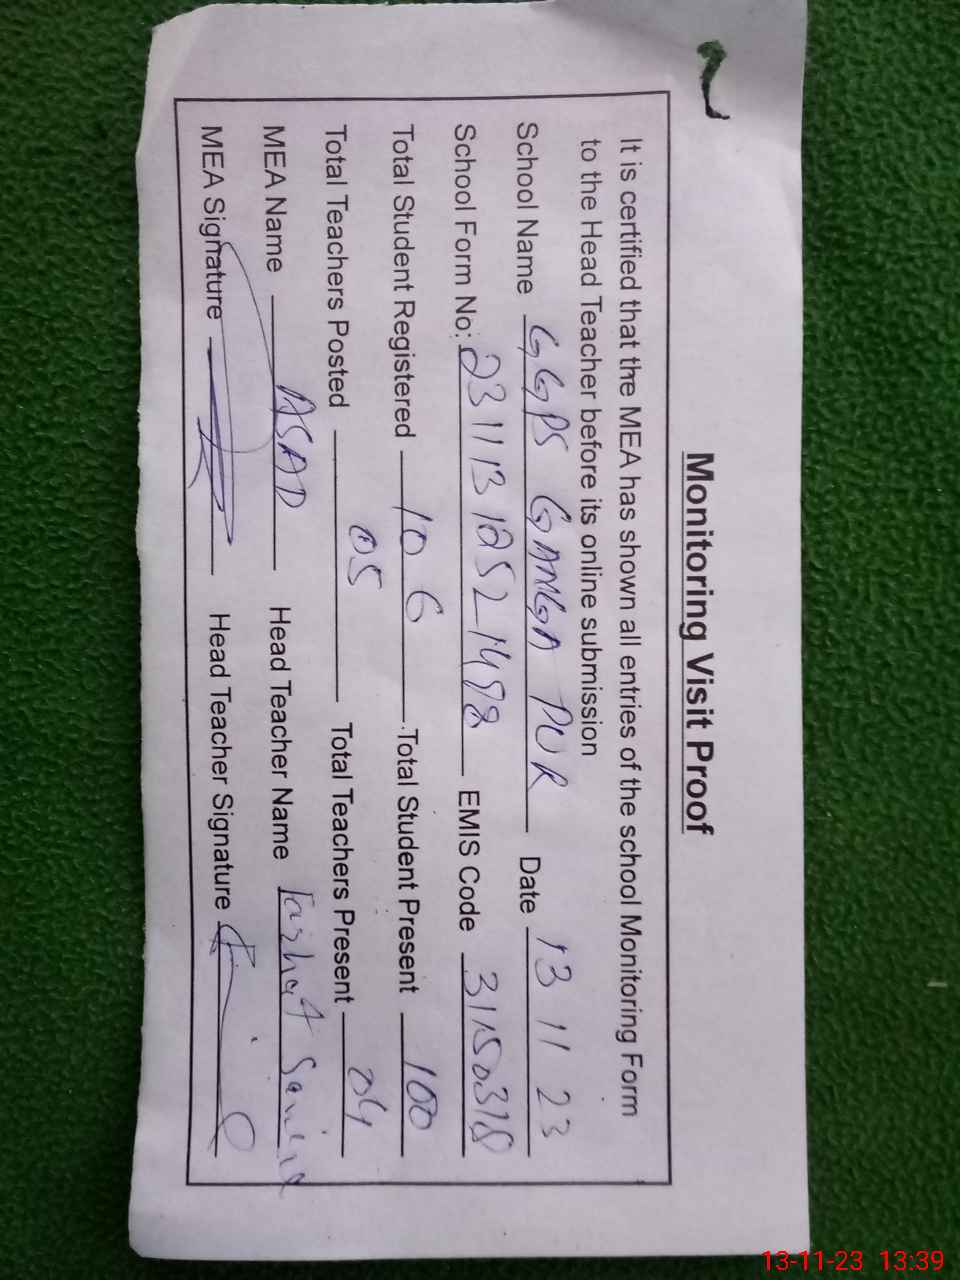 Monitoring Visit Proof
It is certified that the MEA has shown all entries of the school Monitoring Form
to the Head Teacher before its online submission
School Name GGPS GANGA PUR Date 13 11 23
School Form No: EMIS Code 31150318
Total Student Registered 106 Total Student Present 100
Total Teachers Posted 05 Total Teachers Present 04
MEA Name ASAD Head Teacher Name
MEA Signature Head Teacher Signature
13-11-23 13:39